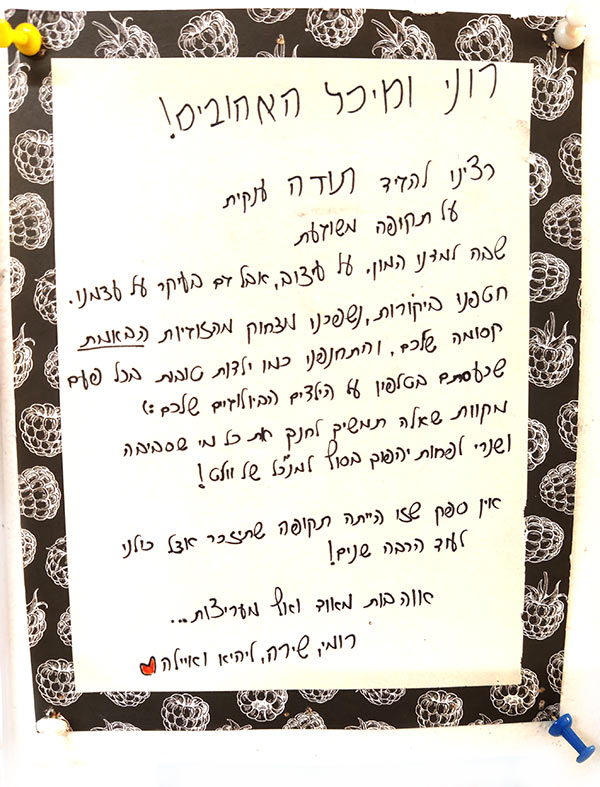 רוני ומיכל האהובים!
רצינו להגיד תודה ענקית
על תקופה משוגעת
שבה למדנו המון. על עיצוב, אבל גם בעיקר על עצמנו.
חטפנו ביקורות, נשפכנו מצחוק מהזוגיות הבאמת
קסומה שלכם, והתחנפנו כמו ילדות טובות בכל פעם
שכעסתם בטלפון על הילדים הביולוגים שלכם :)
מקוות שאלה תמשיך לחנך את כל מי שסביבה
ושנרי לפחות יהפוך בסוף למנכ"ל של וולט!
אין ספק שזו הייתה תקופה שתיזכר אצל כולנו
לעוד הרבה שנים!
אוהבות מאוד ואף מעריצות...
רומי, שירה, ליהיא ואיילה